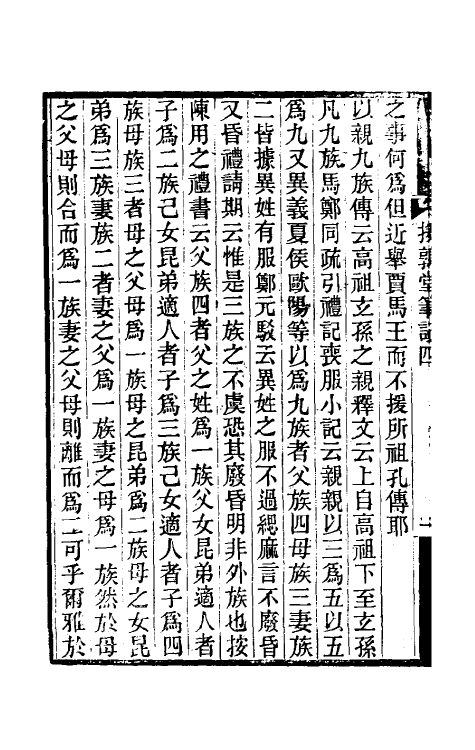 援鶉堂筆記四
之事何爲但近舉賈馬王而不援所祖孔傳耶
以親九族傳云高祖玄孫之親釋文云上自高祖下至玄孫
凡九族馬鄭同疏引禮記喪服小記云親親以三爲五以五
爲九又異義夏侯歐陽等以爲九族者父族四母族三妻族
二皆據異姓有服鄭元駁云異姓之服不過緦麻言不廢昏
又昏禮請期云惟是三族之不虞恐其廢昏明非外族也按
陳用之禮書云父族四者父之姓爲一族父女昆弟適人者
子爲二族己女昆弟適人者子爲三族己女適人者子爲四
族母族三者母之父母爲一族母之昆弟爲二族母之女昆
弟爲三族妻族二者妻之父爲一族妻之母爲一族然於母
之父母則合而爲一族妻之父母則離而爲二可乎爾雅於